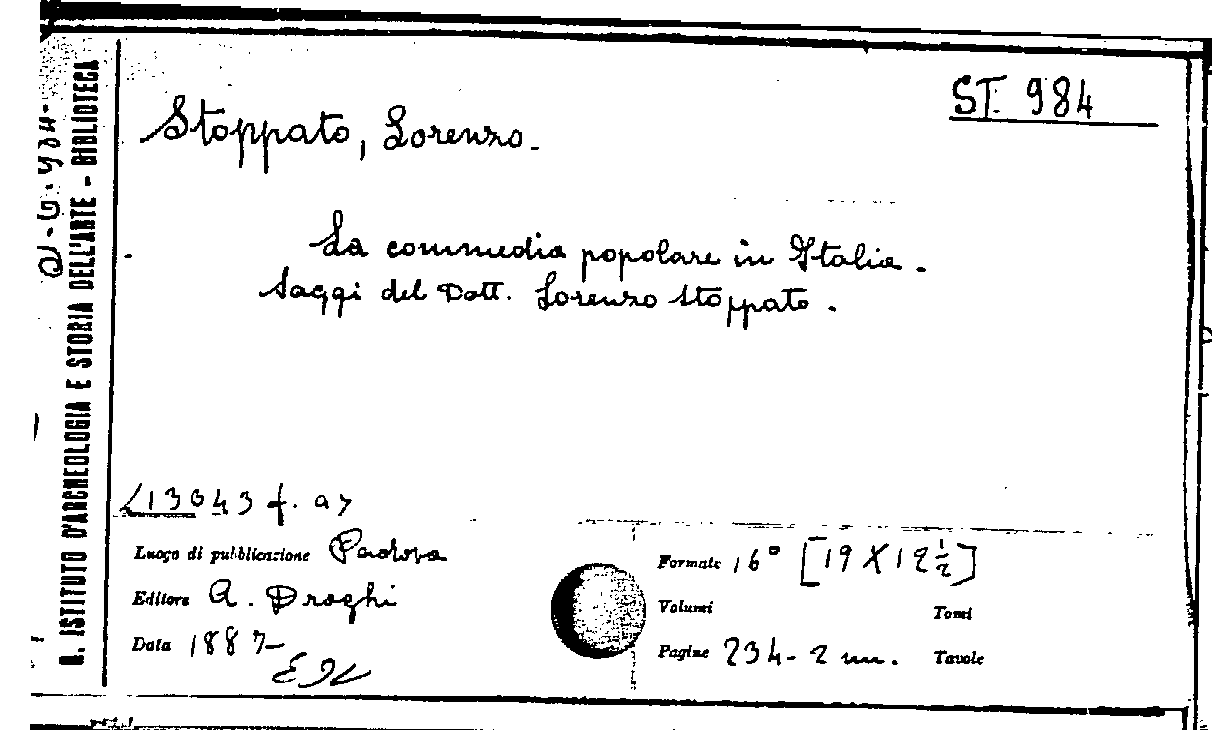 ST. 984
R. ISTITUTO D'ARCHEOLOGIA E STORIA DELL'ARTE - BIBLIOTECA
Stoppato, Lorenzo.
La commedia popolare in Italia.
Saggi del Dott. Lorenzo Stoppato.
L13043 f. a7
Luogo di pubblicazione Padova
Editore A. Draghi
Data 1887
Formato 16° [19 X 12 ½]
Volumi Tomi
Pagine 234-2 nn. Tavole